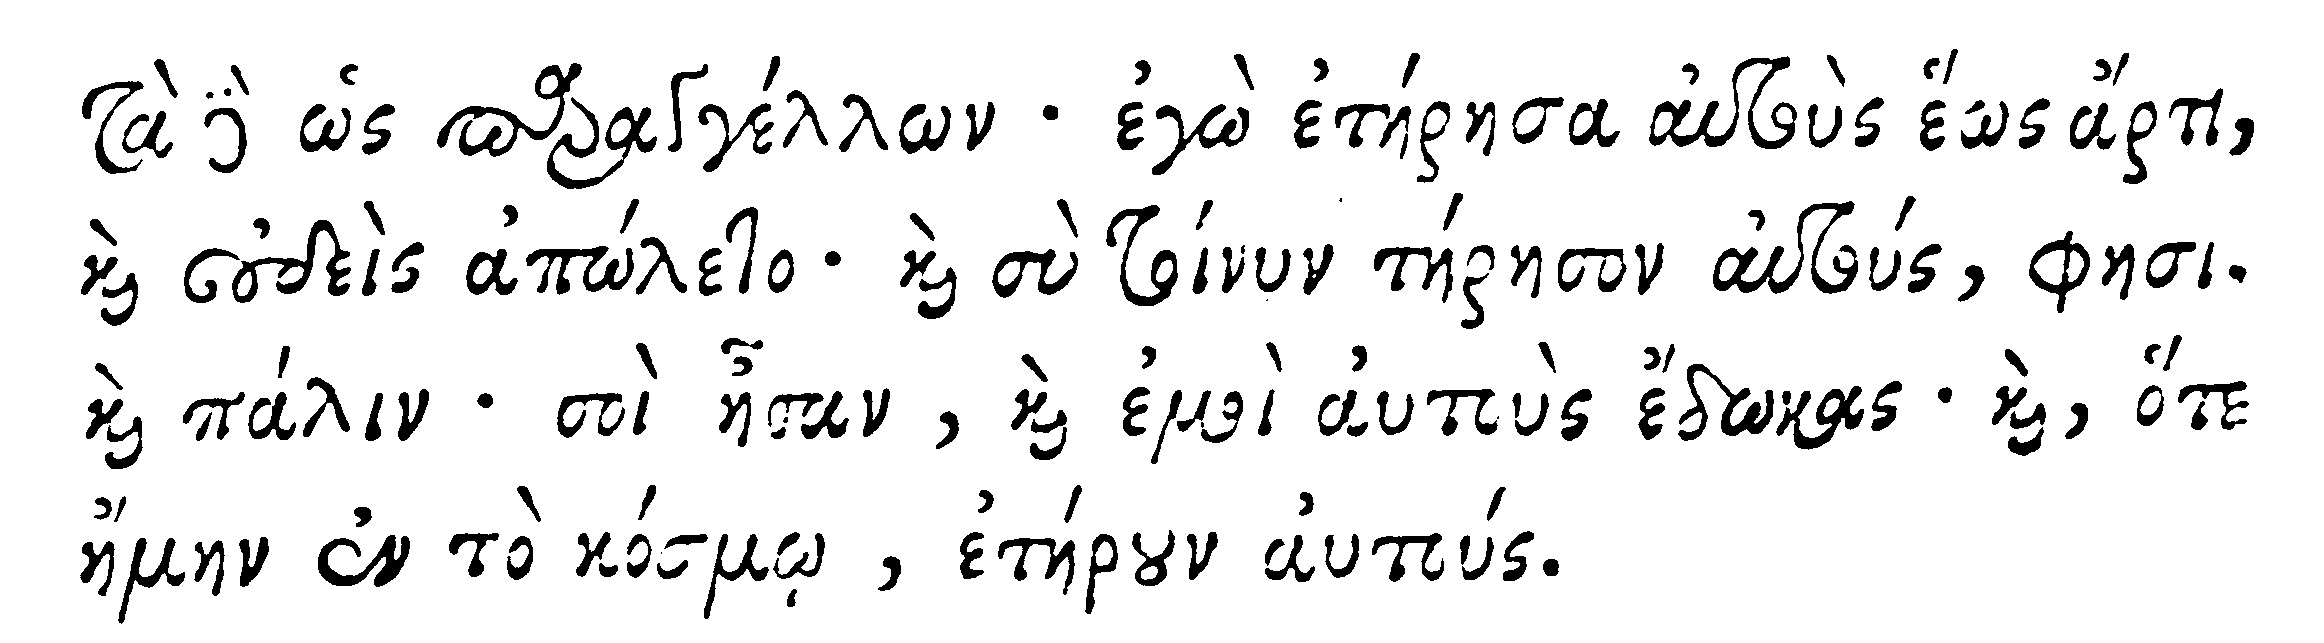 τὰ δὲ ὡς παραγγέλλων · ἐγὼ ἐτήρησα αὐτοὺς ἕως ἄρτι,
καὶ οὐδεὶς ἀπώλετο · καὶ σὺ τοίνυν τήρησον αὐτούς, φησι.
καὶ πάλιν · σοὶ ἦσαν, καὶ ἐμοὶ αὐτοὺς ἔδωκας · καὶ, ὅτε
ἤμην ἐν τὸ κόσμῳ, ἐτήρουν αὐτούς.